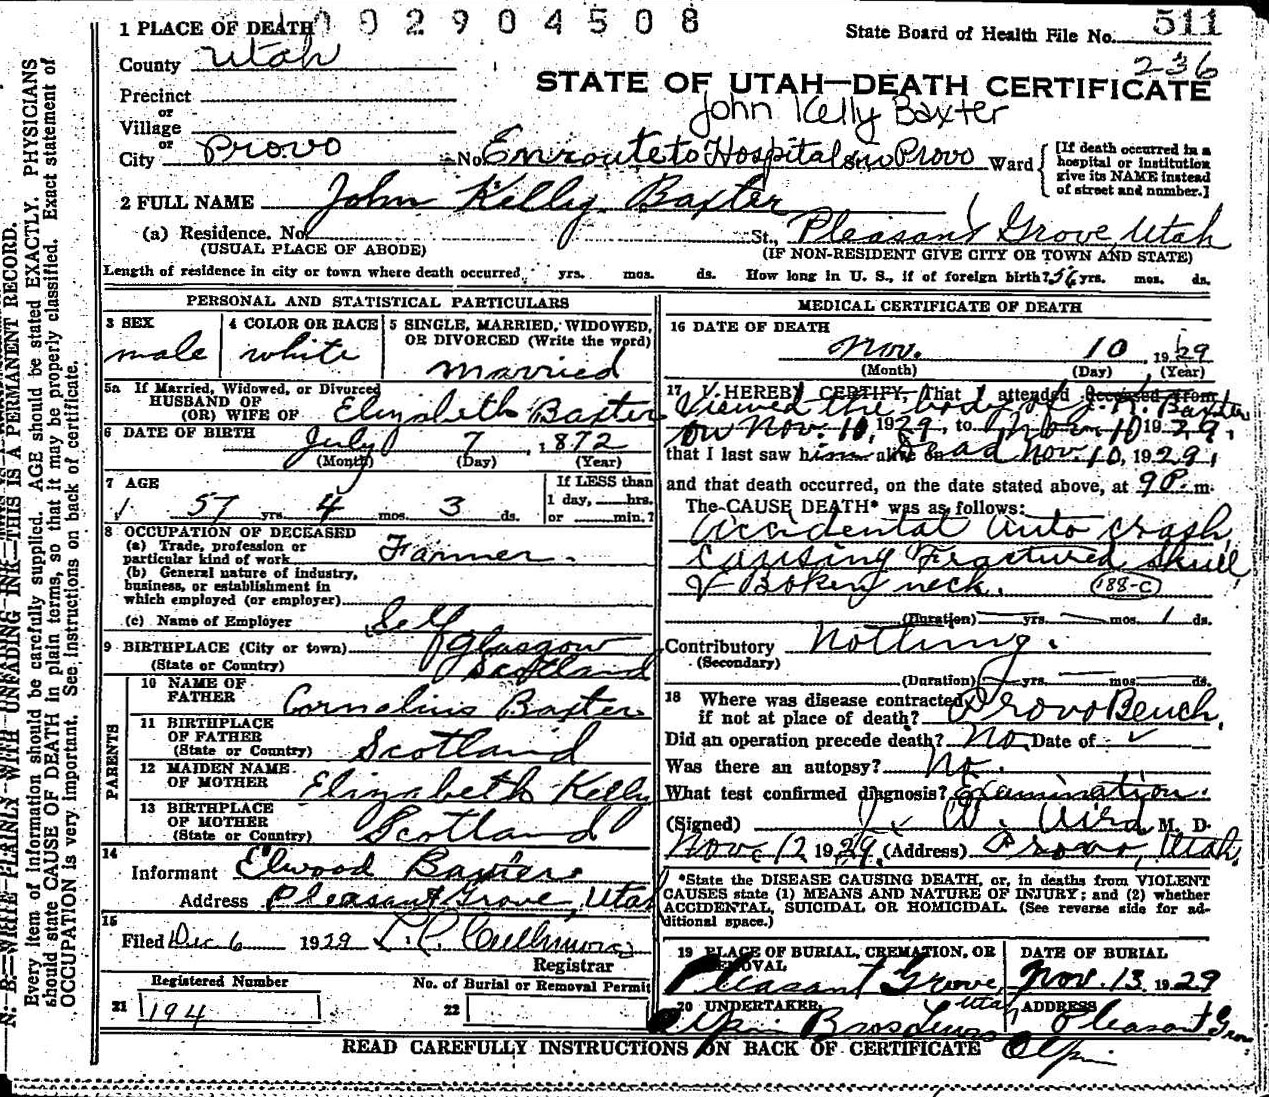 002904508
511
1 PLACE OF DEATH
State Board of Health File No.
236
County Utah
STATE OF UTAH—DEATH CERTIFICATE
Precinct
or
John Kelly Baxter
Village
or
City Provo No. Enroute to Hospital in Provo Ward
[If death occurred in a
hospital or institution
give its NAME instead
of street and number.]
2 FULL NAME John Kelly Baxter
(a) Residence. No. St., Pleasant Grove, Utah
(USUAL PLACE OF ABODE) (IF NON-RESIDENT GIVE CITY OR TOWN AND STATE)
Length of residence in city or town where death occurred yrs. mos. ds. How long in U. S., if of foreign birth? 56 yrs. mos. ds.
PERSONAL AND STATISTICAL PARTICULARS
3 SEX 4 COLOR OR RACE 5 SINGLE, MARRIED, WIDOWED,
OR DIVORCED (Write the word)
male white married
5a If Married, Widowed, or Divorced
HUSBAND OF
(OR) WIFE OF Elizabeth Baxter
6 DATE OF BIRTH July 7, 1872
(Month) (Day) (Year)
7 AGE If LESS than
57 yrs. 4 mos. 3 ds. 1 day, hrs.
or min.?
8 OCCUPATION OF DECEASED
(a) Trade, profession or
particular kind of work Farmer
(b) General nature of industry,
business, or establishment in
which employed (or employer)
(c) Name of Employer Self
9 BIRTHPLACE (City or town) Glasgow
(State or Country) Scotland
PARENTS
10 NAME OF
FATHER Cornelius Baxter
11 BIRTHPLACE
OF FATHER Scotland
(State or Country)
12 MAIDEN NAME
OF MOTHER Elizabeth Kelly
13 BIRTHPLACE
OF MOTHER Scotland
(State or Country)
14
Informant Elwood Baxter
Address Pleasant Grove, Utah
15
Filed Dec 6 1929
Registrar
Registered Number No. of Burial or Removal Permit
21 194 22
MEDICAL CERTIFICATE OF DEATH
16 DATE OF DEATH
Nov. 10 1929
(Month) (Day) (Year)
17 I HEREBY CERTIFY, That I attended deceased from
Viewed the body of J. K. Baxter
on Nov. 10, 1929, to Nov 10 1929,
that I last saw him alive on dead Nov. 10, 1929,
and that death occurred, on the date stated above, at 9 P. m.
The CAUSE DEATH* was as follows:
Accidental auto crash
causing Fractured skull
& Boken neck. 188-C
(Duration) yrs. mos. 1 ds.
Contributory Nothing.
(Secondary)
(Duration) yrs. mos. ds.
18 Where was disease contracted
if not at place of death? Provo Bench,
Did an operation precede death? No Date of
Was there an autopsy? No.
What test confirmed diagnosis? Examination.
(Signed) J. W. Aird, M. D.
Nov. 12 1929, (Address) Provo, Utah.
*State the DISEASE CAUSING DEATH, or, in deaths from VIOLENT
CAUSES state (1) MEANS AND NATURE OF INJURY; and (2) whether
ACCIDENTAL, SUICIDAL OR HOMICIDAL. (See reverse side for ad-
ditional space.)
19 PLACE OF BURIAL, CREMATION, OR
REMOVAL DATE OF BURIAL
Pleasant Grove, Utah Nov. 13 1929
20 UNDERTAKER ADDRESS
Olpin Bros Pleasant Grove
Olpin
READ CAREFULLY INSTRUCTIONS ON BACK OF CERTIFICATE
N. B.—WRITE PLAINLY WITH UNFADING INK—THIS IS A PERMANENT RECORD.
Every item of information should be carefully supplied. AGE should be stated EXACTLY. PHYSICIANS
should state CAUSE OF DEATH in plain terms, so that it may be properly classified. Exact statement of
OCCUPATION is very important. See instructions on back of certificate.